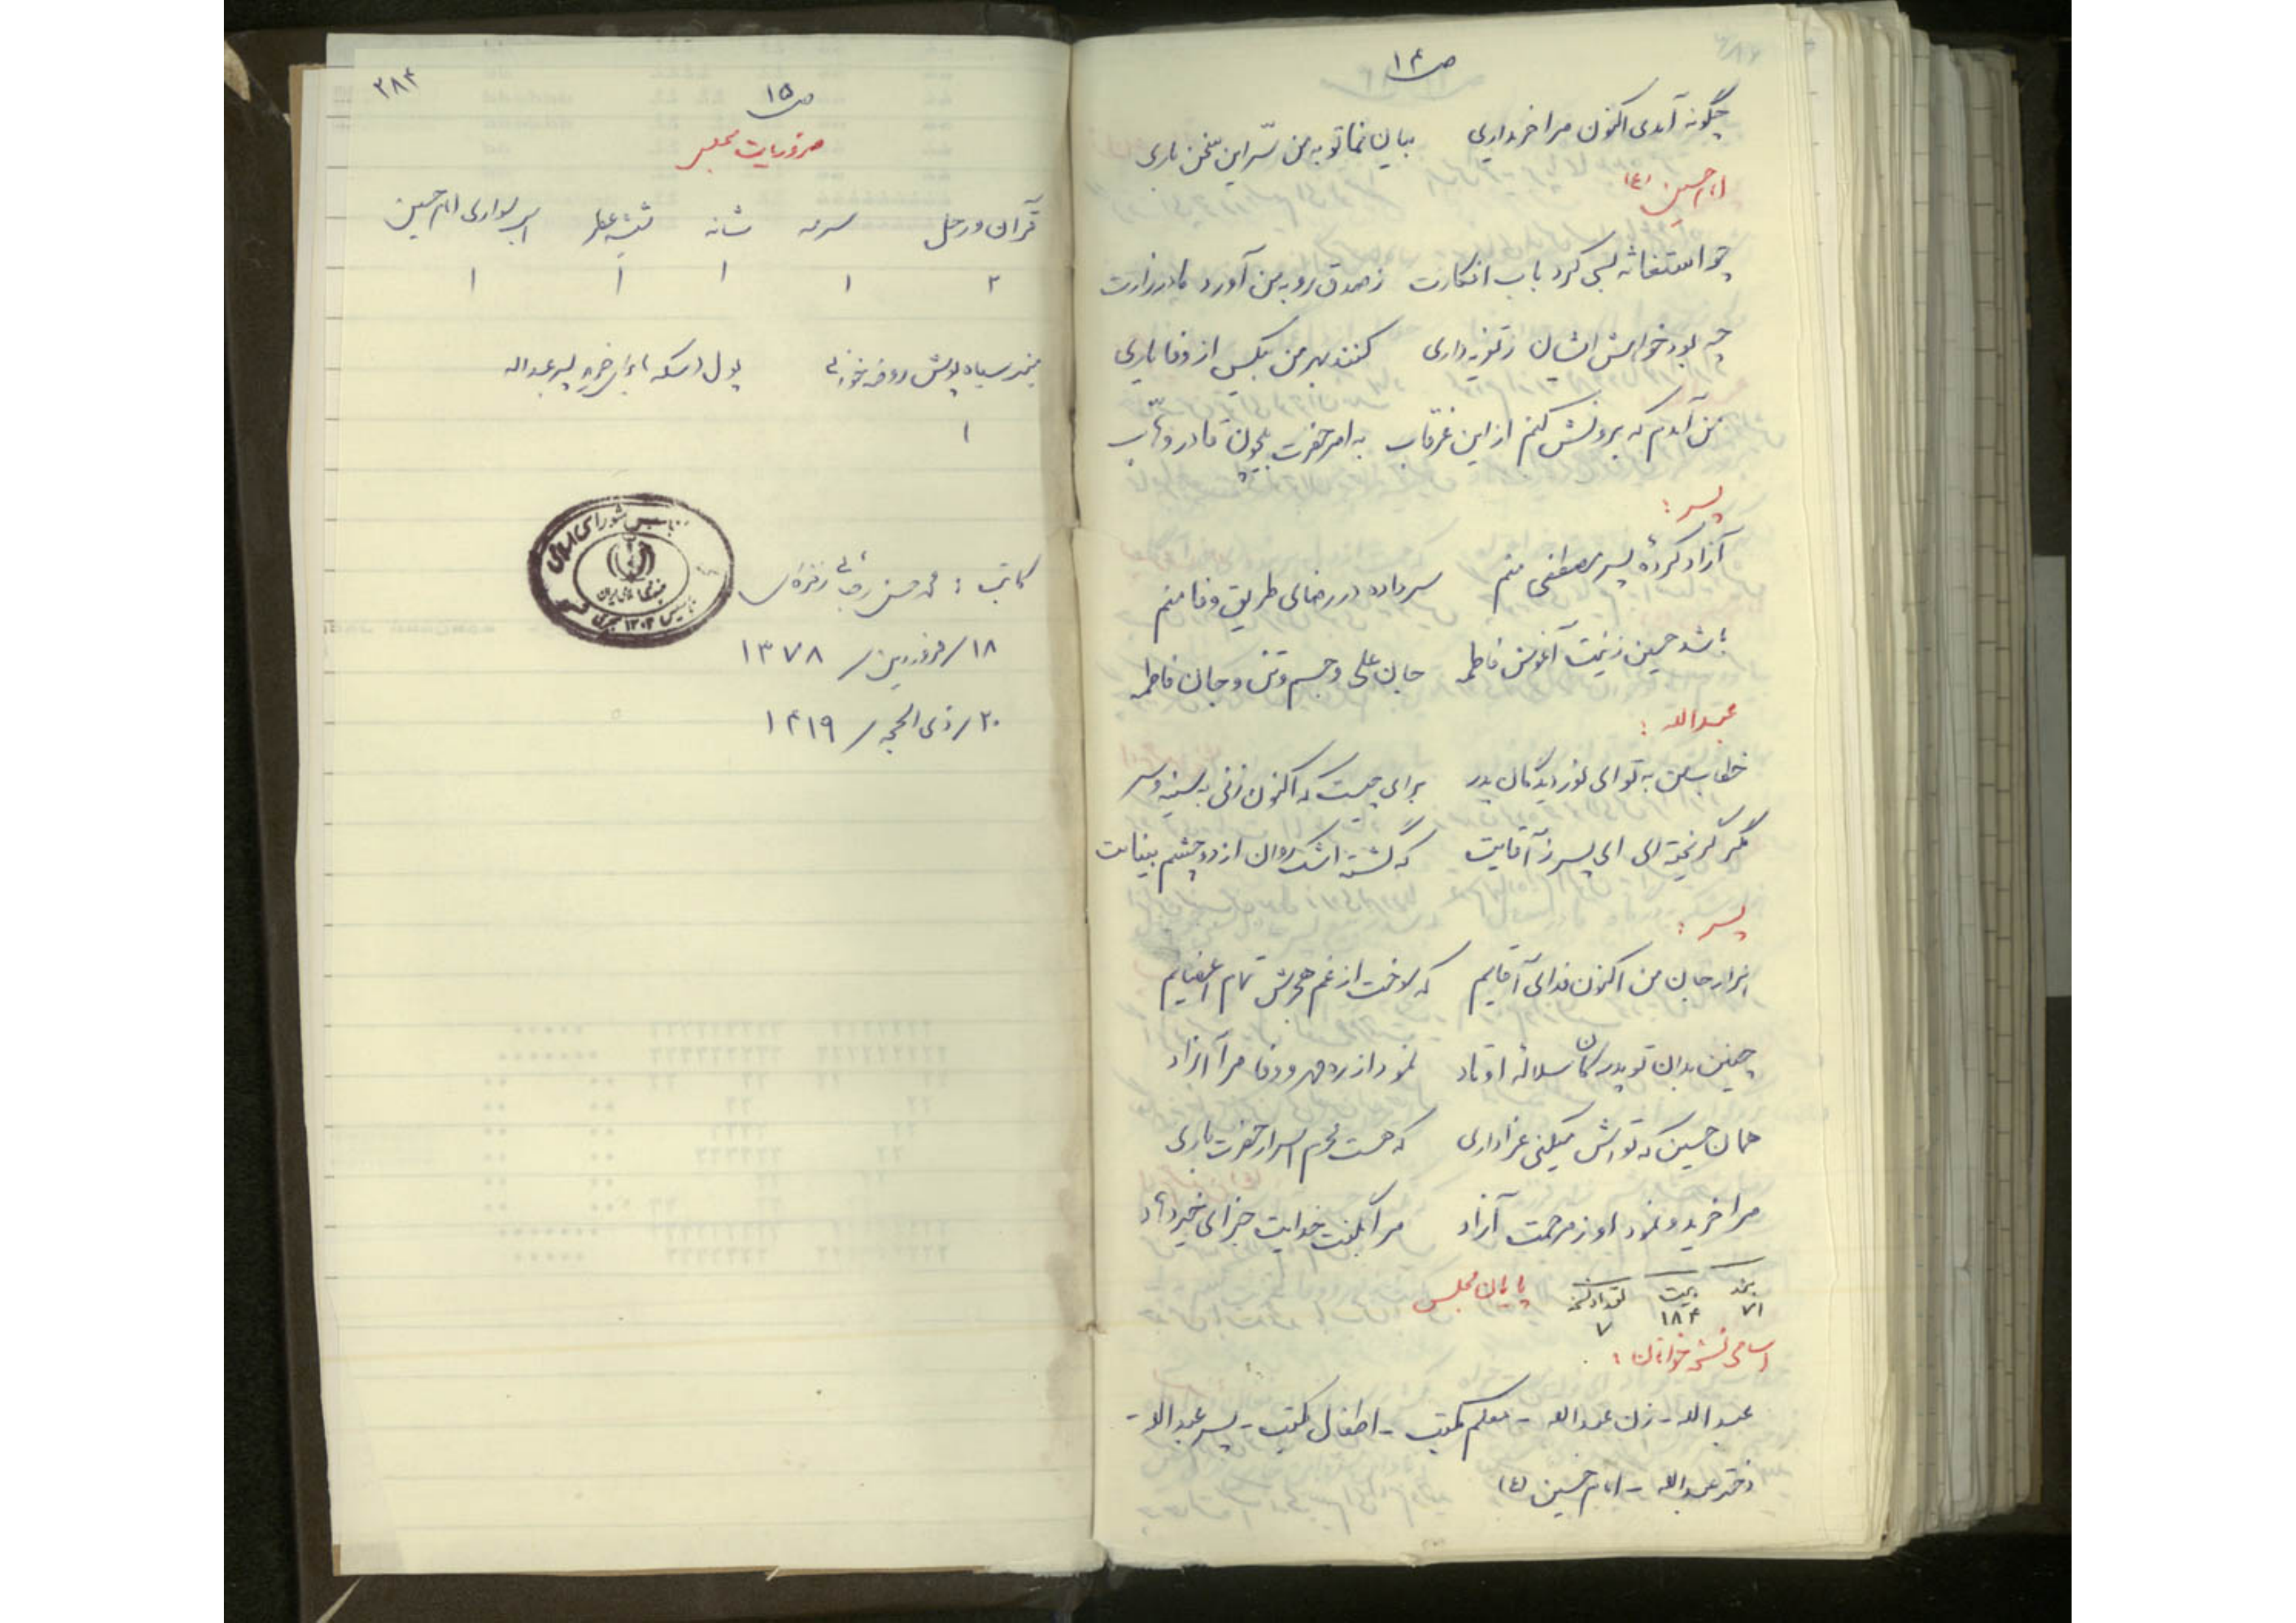 ص ۱۴
چگونه آمدی اکنون مرا خریداری بیان نما تو به من سّر این سخن باری
امام حسین (ع)
چو استغاثه بسی کرد باب افکارت ز صدق رو به من آورد مادر زارت
چه بود خواهش ایشان ز تعزیه داری کنند بهر من بیکس از وفا یاری
من آمدم که برونش کنم از این غرقاب به امر حضرت بیچون قادر وهّاب
پسر :
آزاد کردهٔ پسر مصطفی منم سر داده در رضای طریق وفا منم
باشد حسین زینت آغوش فاطمه جان علی و جسم و تن و جان فاطمه
عبداله :
خطاب من به تو ای نور دیدگان پدر برای چیست که اکنون زنی به سینه و سر
مگر گریخته ای ای پسر ز آقایت که گشته اشک روان از دو چشم بینایت
پسر :
هزار جان من اکنون فدای آقایم که سوخت از غم هجرش تمام اعضایم
چنین بدان تو پدر کان سلالهٔ اوتاد نمود از ره مهر و وفا مرا آزاد
همان حسین که تو اش میکنی عزاداری که هست محرم اسرار حضرت باری
مرا خرید و نمود او ز مرحمت آزاد مرا بگفت خدایت جزای خیر دهاد
بند ۷۱ بیت ۱۸۴ تعداد نسخه ۷ پایان مجلس
اسامی نسخه خوانان :
عبداله - زن عبداله - معلم مکتب - اطفال مکتب - پسر عبداله -
دختر عبداله - امام حسین (ع)
۳۸۴
ص ۱۵
ضروریات مجلس
قرآن و رحل سرمه شانه شیشه عطر اسب سواری امام حسین
۲ ۱ ۱ ۱ ۱
سیاه پوش روضه خوانی پول یا سکه برای خرید پسر عبداله
۱
کاتب : محمد حسن رجائی زفره ای
۱۸/فروردین/ ۱۳۷۸
۲۰/ذی الحجه/ ۱۴۱۹
مجلس شورای اسلامی